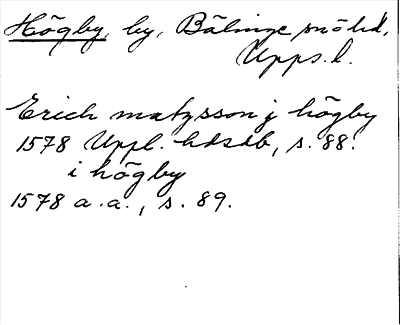 Högby, by, Bälinge snöhd,
Upps. l.
Erich matzsson j högby
1578 Uppl. hdsdb, s. 88.
i högby
1578 a. a., s. 89.